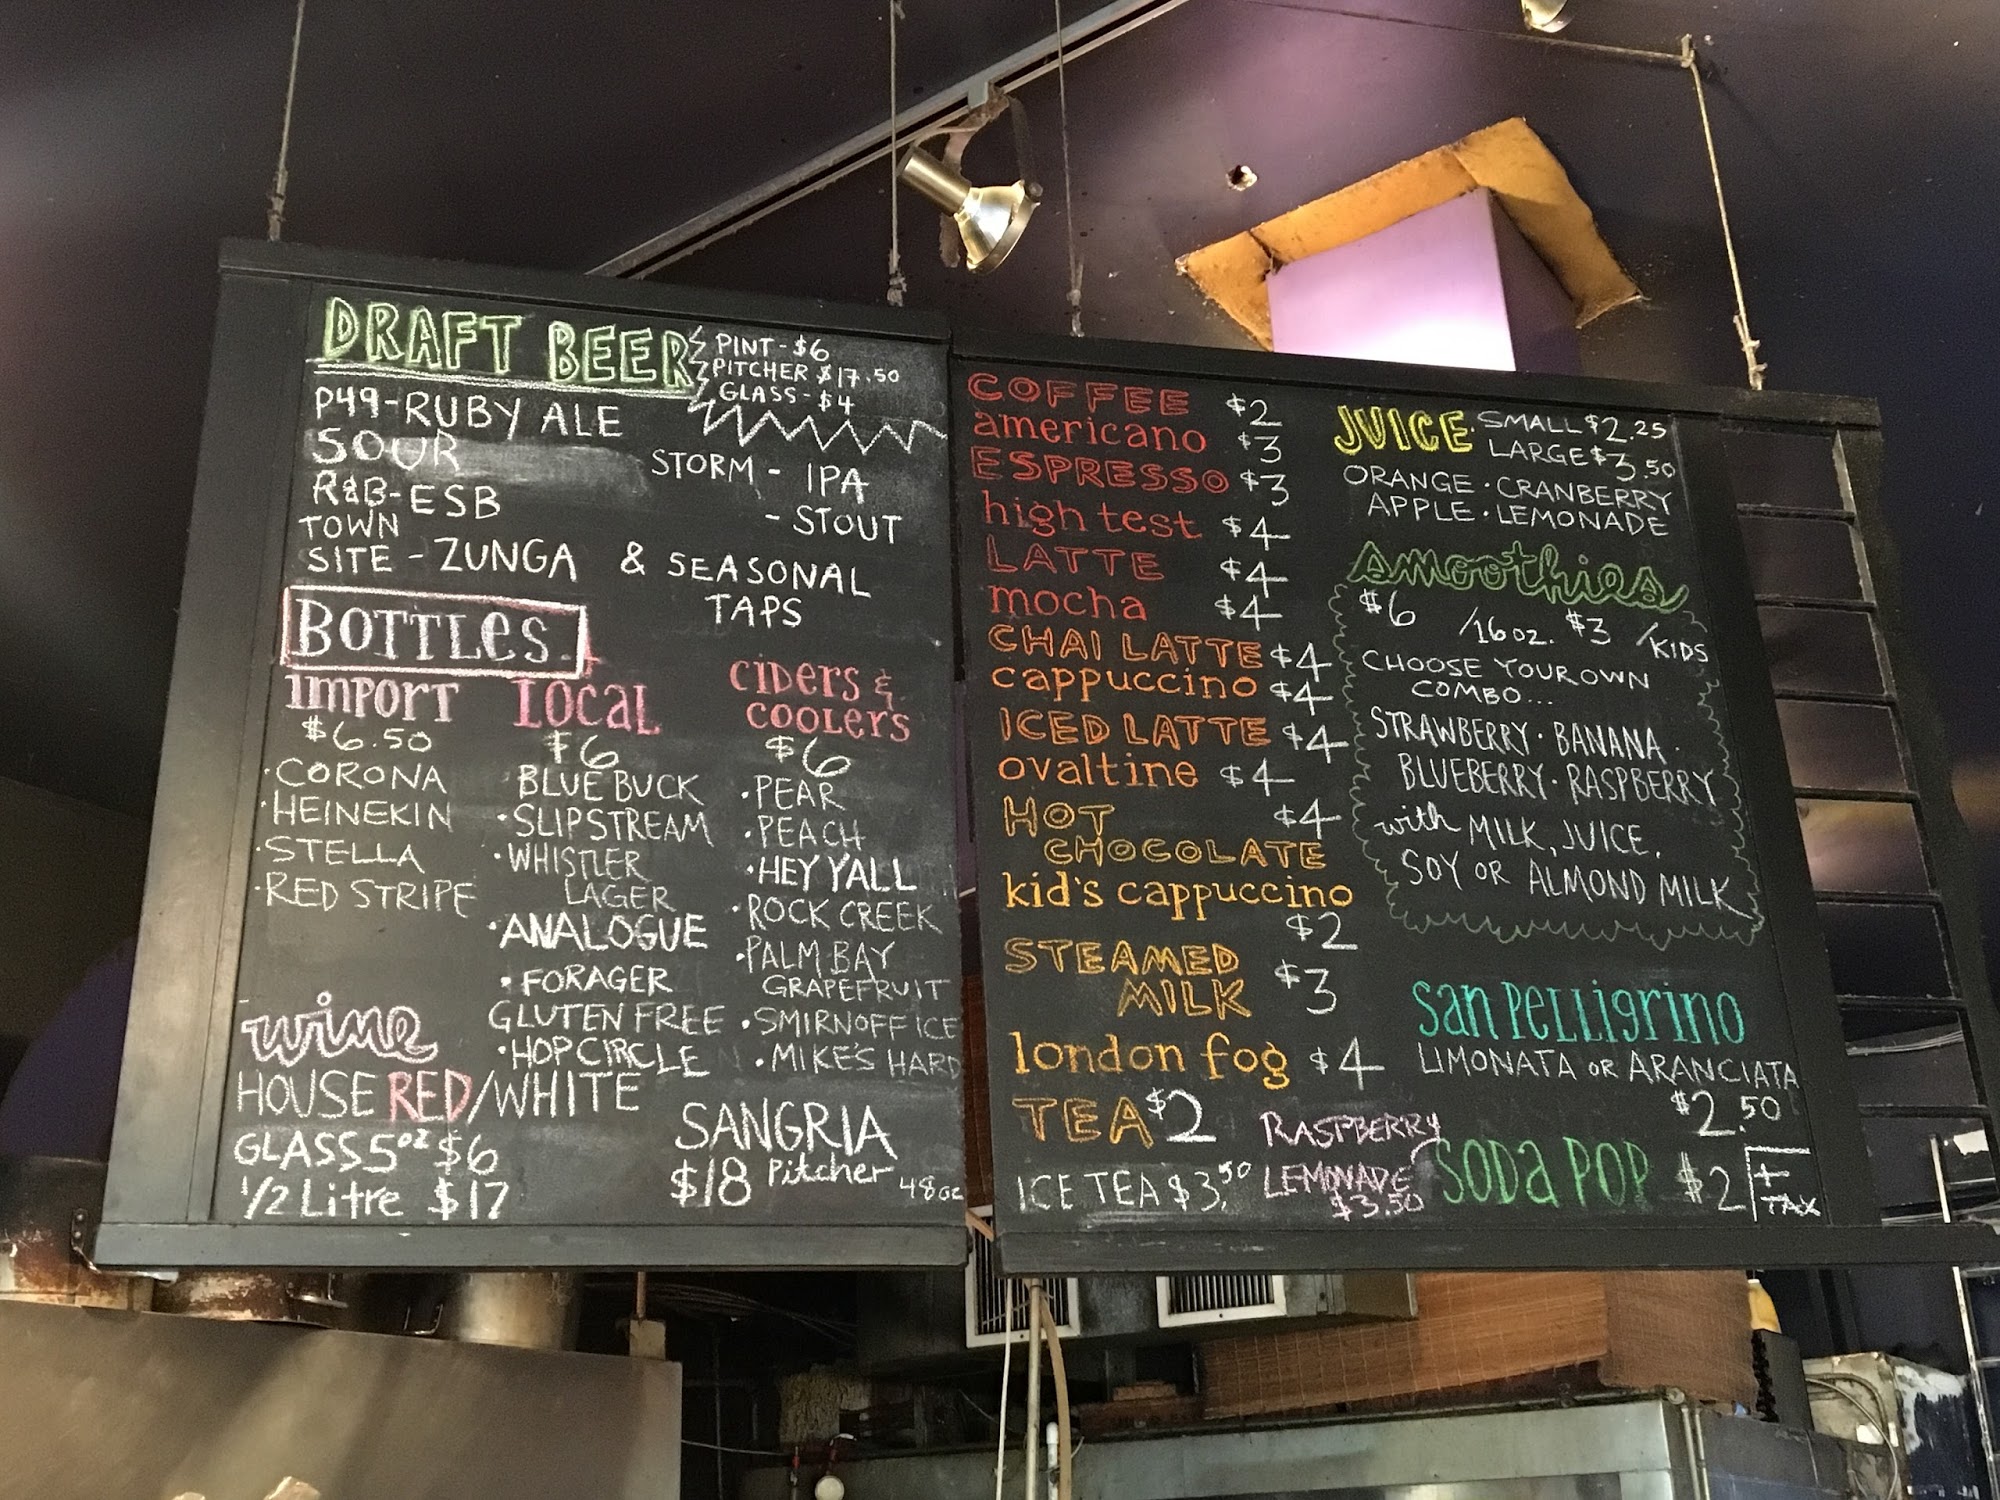 DRAFT BEER
PINT - $6
PITCHER $17.50
GLASS - $4
P49-RUBY ALE
SOUR
R&B-ESB
TOWN
SITE - ZUNGA
STORM - IPA
- STOUT
& SEASONAL
TAPS
BOTTLES
IMPORT
$6.50
·CORONA
·HEINEKIN
·STELLA
·RED STRIPE
LOCAL
$6
BLUE BUCK
·SLIPSTREAM
·WHISTLER
LAGER
·ANALOGUE
·FORAGER
GLUTEN FREE
·HOP CIRCLE
CIDERS &
COOLERS
$6
·PEAR
·PEACH
·HEY YALL
·ROCK CREEK
·PALM BAY
GRAPEFRUIT
·SMIRNOFF ICE
·MIKE'S HARD
wine
HOUSE RED/WHITE
GLASS 5oz $6
1/2 Litre $17
SANGRIA
$18 Pitcher 48oz
COFFEE $2
americano $3
ESPRESSO $3
high test $4
LATTE $4
mocha $4
CHAI LATTE $4
cappuccino $4
ICED LATTE $4
ovaltine $4
HOT $4
CHOCOLATE
kid's cappuccino
$2
STEAMED $3
MILK
london fog $4
TEA $2
ICE TEA $3.50
RASPBERRY
LEMONADE
$3.50
JUICE. SMALL $2.25
LARGE $3.50
ORANGE · CRANBERRY
APPLE · LEMONADE
smoothies
$6 /16oz. $3 /KIDS
CHOOSE YOUR OWN
COMBO...
STRAWBERRY · BANANA ·
BLUEBERRY · RASPBERRY
with MILK, JUICE,
SOY OR ALMOND MILK
San Pelligrino
LIMONATA OR ARANCIATA
$2.50
SODA POP $2 + TAX